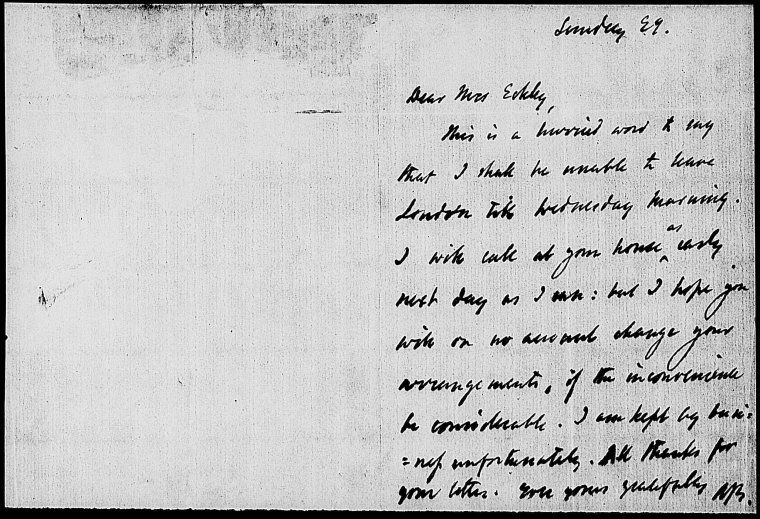 Sunday Eg.
Dear Mrs Eckley,
This is a hurried word to say
that I shall be unable to leave
London till Wednesday Morning.
I will call at your house, as early
next day as I can: but I hope you
will on no account change your
arrangements, if the inconvenience
be considerable. I am kept by busi=
=ness unfortunately. All thanks for
your letter. Ever yours gratefully RB.